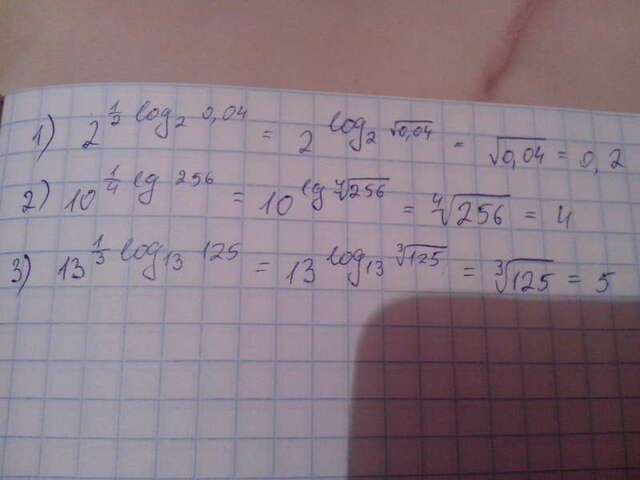 1) 2^{\frac{1}{2} log_2 0,04} = 2^{log_2 \sqrt{0,04}} = \sqrt{0,04} = 0,2
2) 10^{\frac{1}{4} lg 256} = 10^{lg \sqrt[4]{256}} = \sqrt[4]{256} = 4
3) 13^{\frac{1}{3} log_{13} 125} = 13^{log_{13} \sqrt[3]{125}} = \sqrt[3]{125} = 5